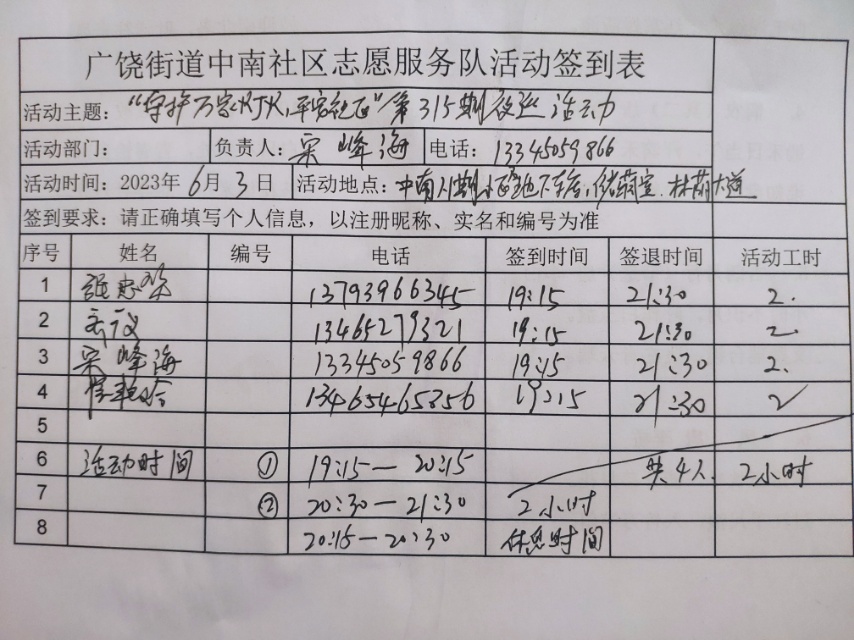 广饶街道中南社区志愿服务队活动签到表
活动主题:"守护万家灯火,平安社区"第315期夜巡活动
活动部门: 负责人:宋峰海 电话:13345059866
活动时间:2023年6月3日 活动地点:中南八期小区地下车库,储藏室.林荫大道
签到要求:请正确填写个人信息,以注册昵称、实名和编号为准
序号 姓名 编号 电话 签到时间 签退时间 活动工时
1 13793966345 19:15 21:30 2.
2 13465279321 19:15 21:30 2
3 宋峰海 13345059866 19:15 21:30 2.
4 13465465356 19:15 21:30 2
5
6 活动时间 ① 19:15—20:15 共4人 2小时
7 ② 20:30—21:30 2小时
8 20:15—20:30 休息时间